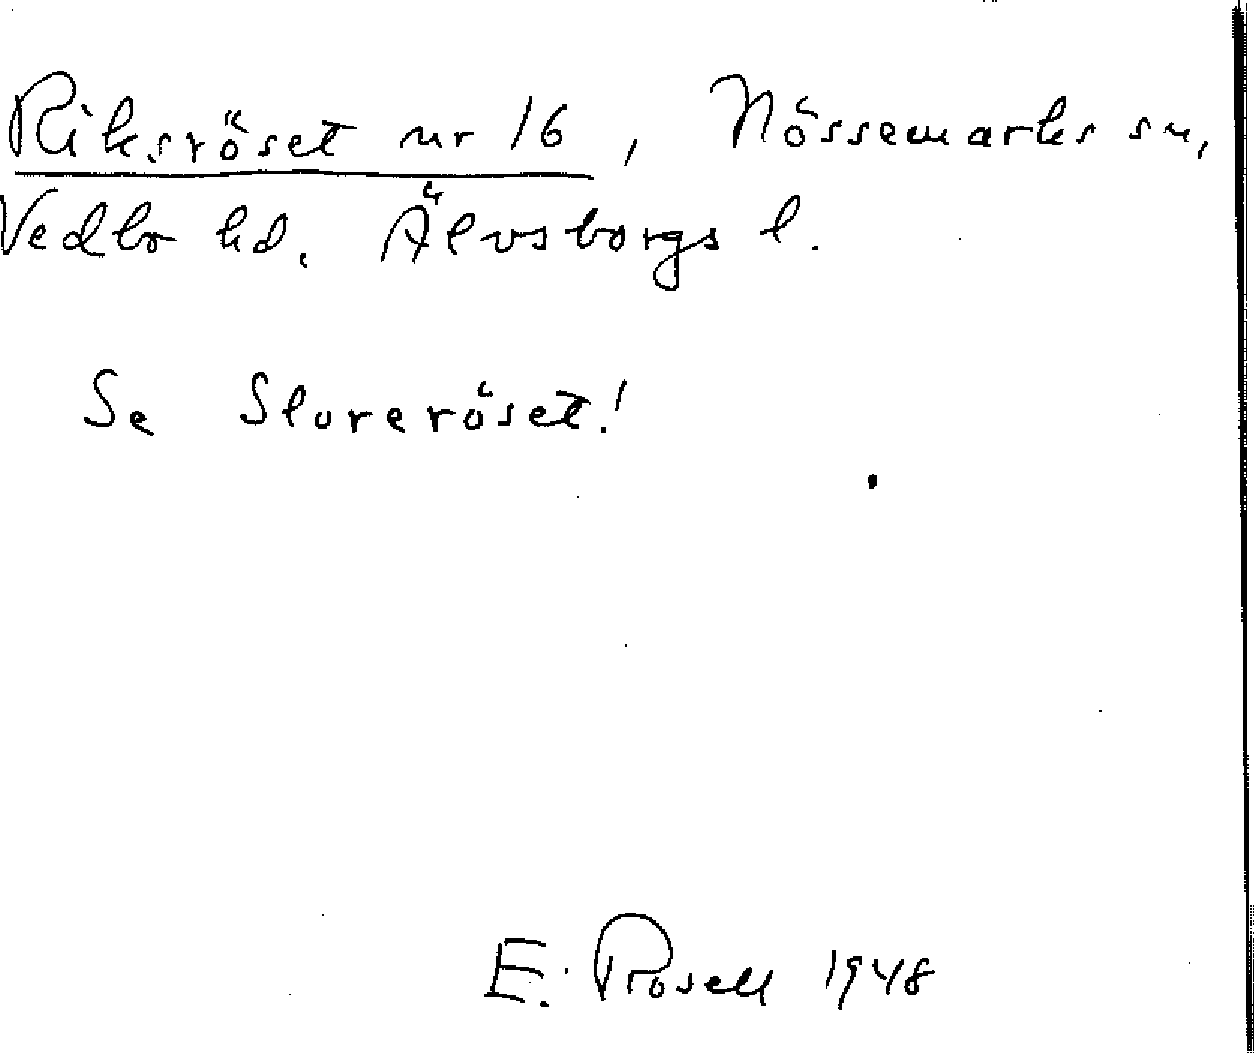 Riksröset nr 16, Nössemarks sn,
Vedbo hd. Älvsborgs l.
Se Sloreröset!
E. Rosell 1948